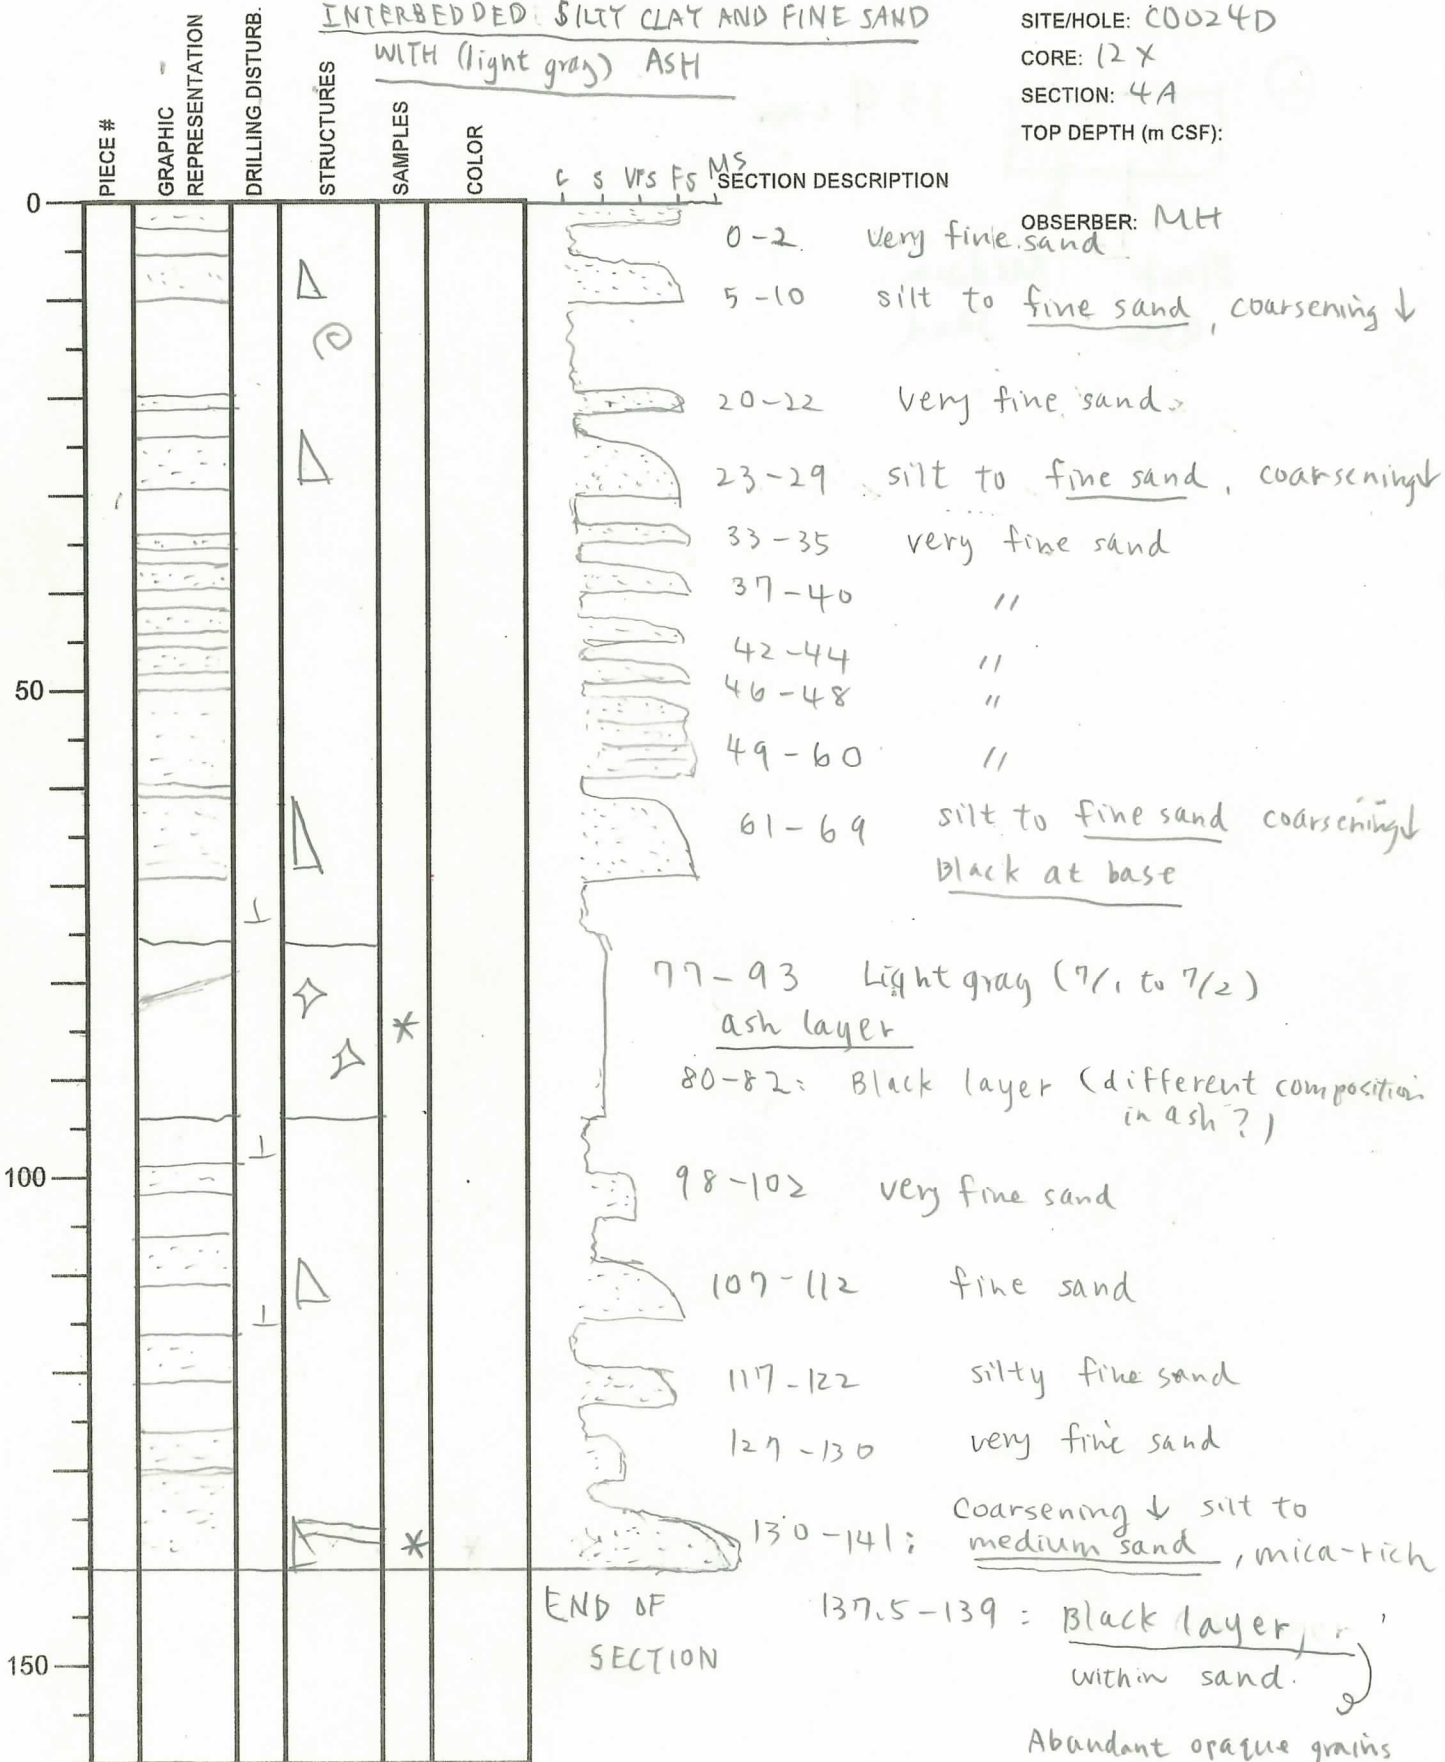 INTERBEDDED SILTY CLAY AND FINE SAND
WITH (light gray) ASH
SITE/HOLE: C0024D
CORE: 12X
SECTION: 4A
TOP DEPTH (m CSF):
OBSERBER: MH
PIECE #
GRAPHIC REPRESENTATION
DRILLING DISTURB.
STRUCTURES
SAMPLES
COLOR
C S VFS FS MS
SECTION DESCRIPTION
0
0-2 very fine sand
5-10 silt to fine sand, coarsening ↓
20-22 very fine sand
23-29 silt to fine sand, coarsening↓
33-35 very fine sand
37-40 〃
42-44 〃
50
46-48 〃
49-60 〃
61-69 silt to fine sand coarsening↓
Black at base
77-93 Light gray (7/1 to 7/2)
ash layer
*
80-82: Black layer (different composition
in ash?)
100
98-102 very fine sand
107-112 fine sand
117-122 silty fine sand
127-130 very fine sand
130-141: Coarsening ↓ silt to
medium sand, mica-rich
*
END OF
SECTION
137.5-139: Black layer,
within sand.
150
Abundant opaque grains